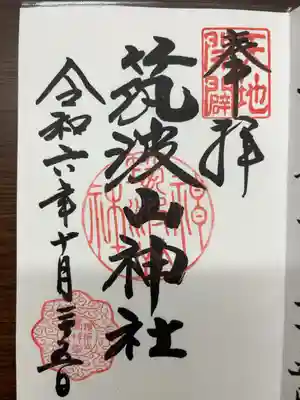 奉拝
天地開闢
筑波山神社
令和六年十月二十五日